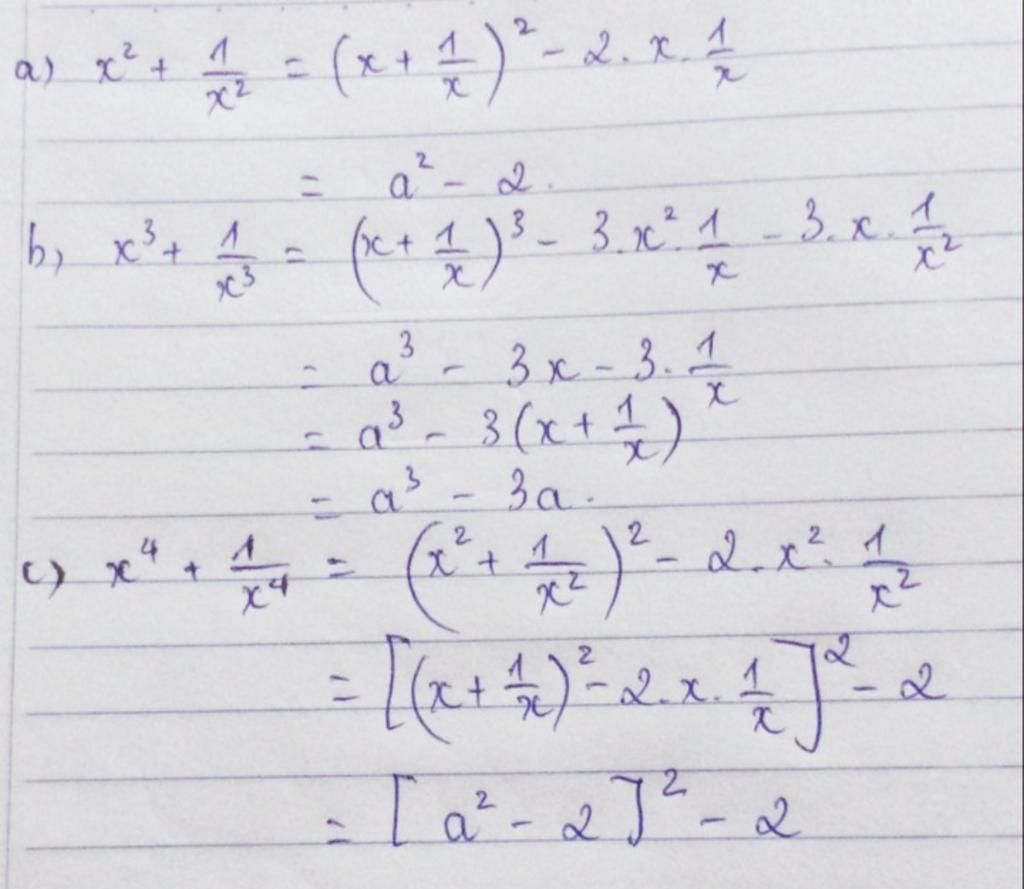 a) x² + 1/x² = (x + 1/x)² - 2. x. 1/x
= a² - 2.
b, x³ + 1/x³ = (x + 1/x)³ - 3.x². 1/x - 3. x. 1/x²
= a³ - 3x - 3. 1/x
= a³ - 3(x + 1/x)
= a³ - 3a.
c) x⁴ + 1/x⁴ = (x² + 1/x²)² - 2. x². 1/x²
= [(x + 1/x)² - 2. x. 1/x]² - 2
= [a² - 2]² - 2